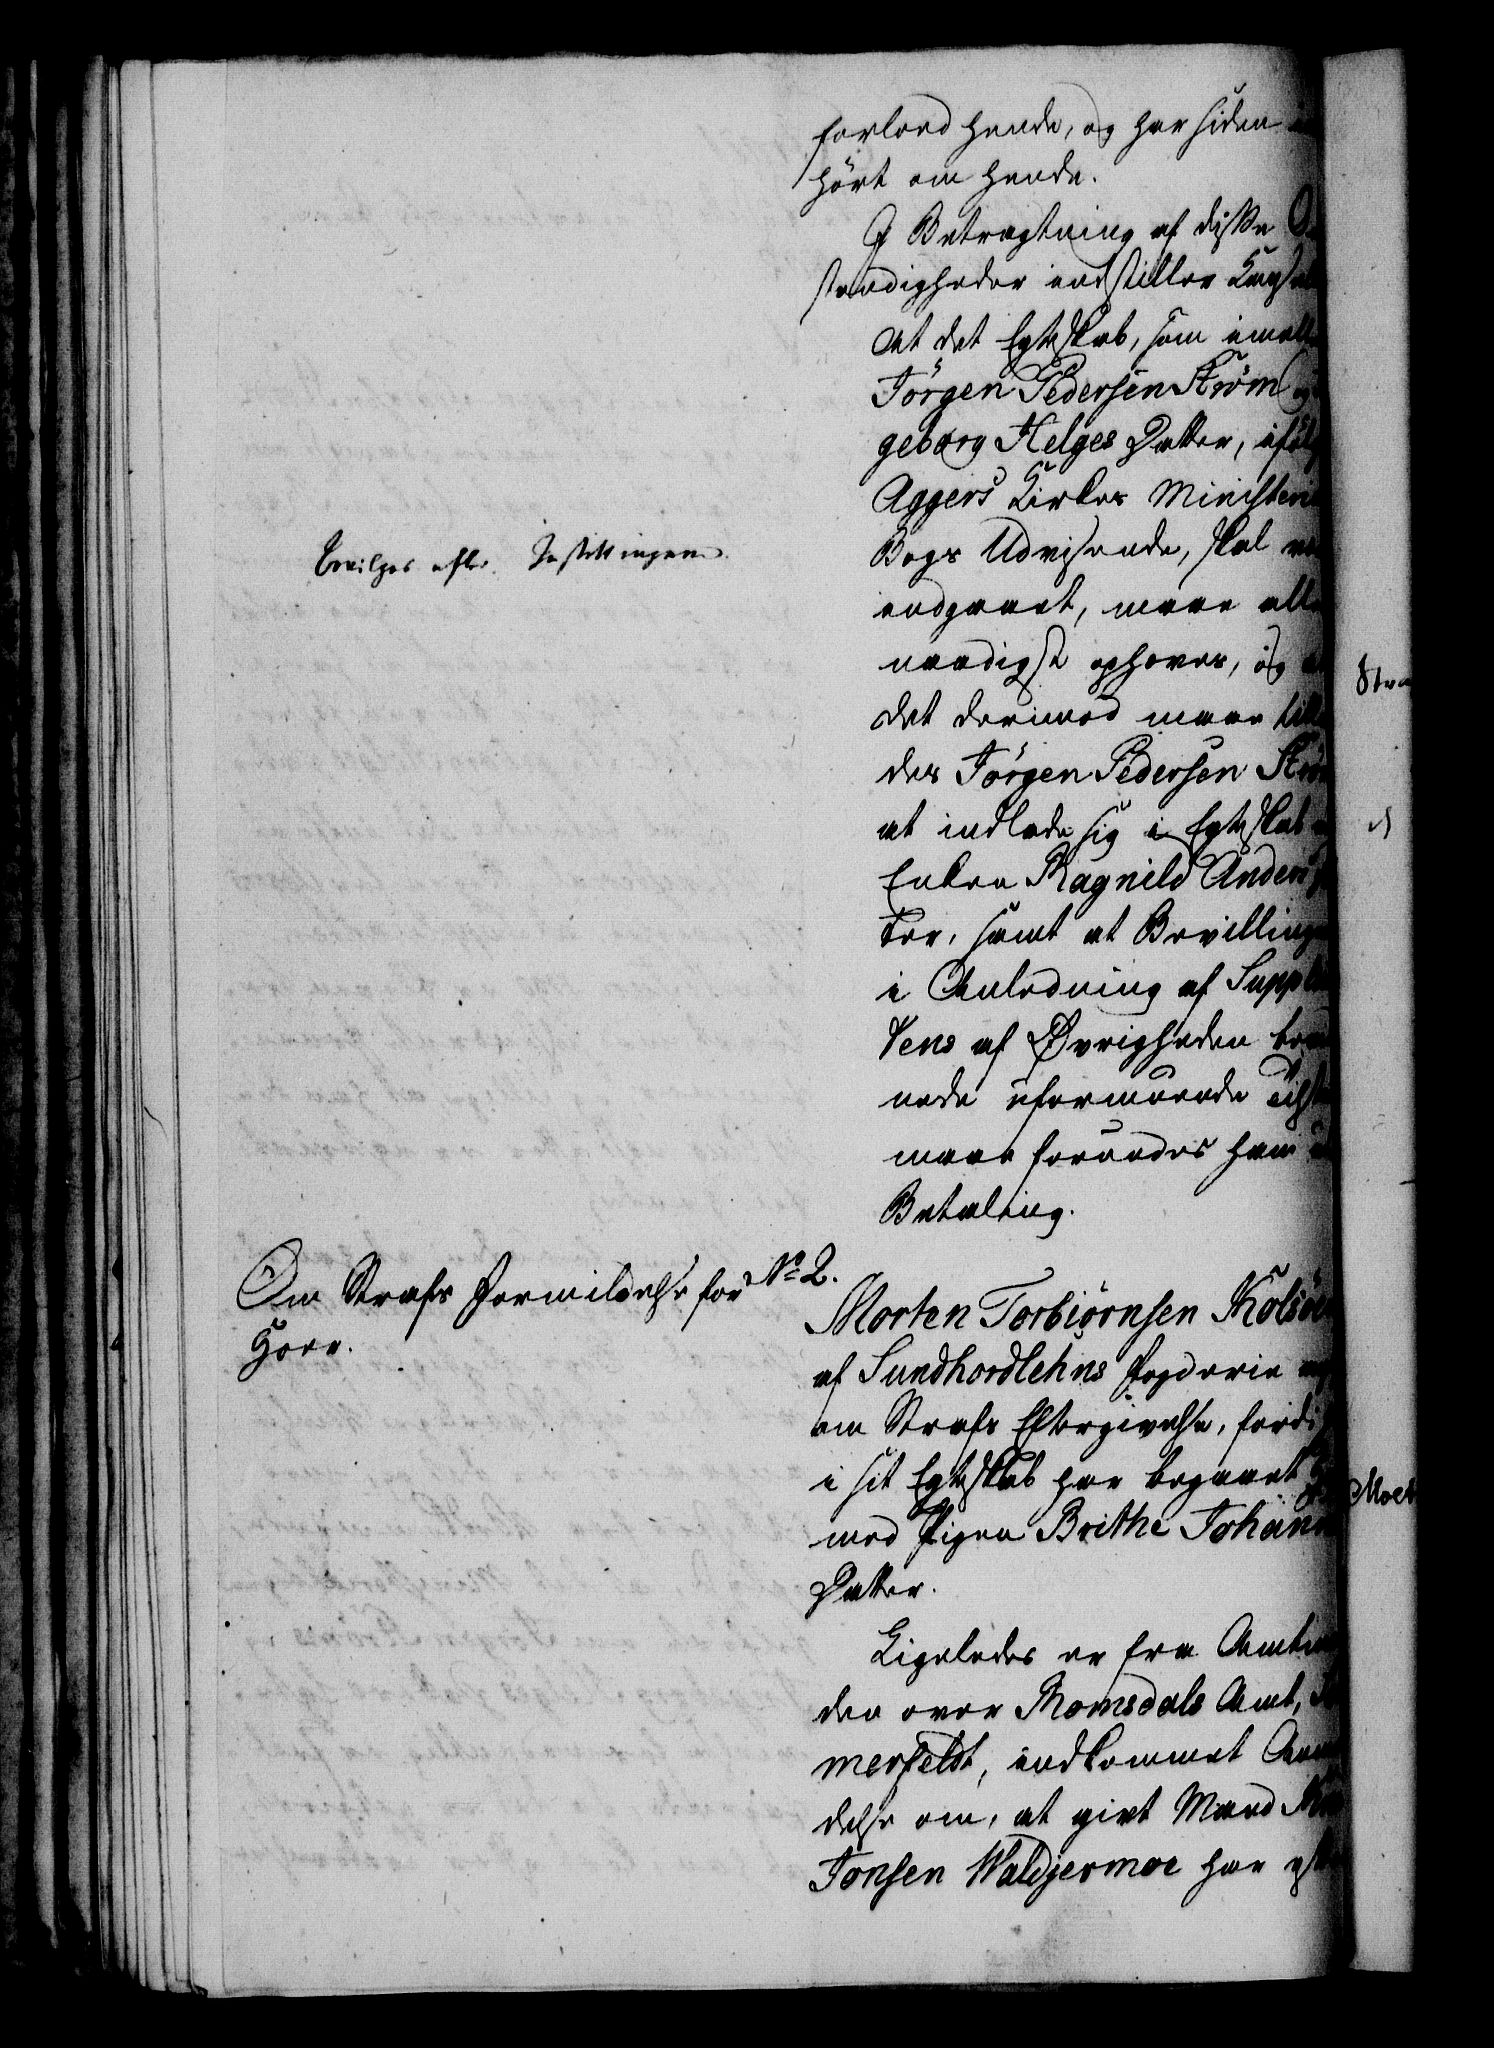 forlod hende, og har siden
hört om hende.
I Betragtning af disse
stændigheder indstiller
at det Egteskab, som imell
Jörgen Pedersen Ström og
geborg Helges Datter, ifölg
Aggers Kirkes Ministeri
Bevilges efter Indstillingen.
Bogs Udvisende, skal
indgaaet, maae aller
naadigst ophæves, og
det derimod maae till
des Jörgen Pedersen Ström
at indlade sig i Egteskab
Enken Ragnild Anders
ter, samt at Bevillingen
i Anledning af Supplican
tens af Øvrigheden
nede uformuende
maae forundes ham
Betaling.
Om Strafs Formildelse for
Hoer.
No 2.
Morten Torbiörnsen
af Sundhordlehns Fogderie
om Strafs Eftergivelse, fordi
i sit Egteskab har begaaet
med Pigen Brithe Johann
Datter.
Ligeledes er fra Amtm
den over Romsdals Amt,
merfeldt, indkommet Anm
delse om, at givt Mand
Jonsen Waldjermoe har